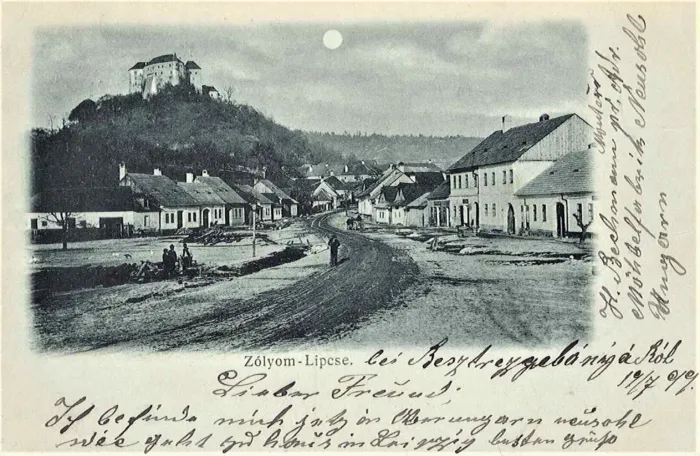 Zólyom-Lipcse. bei Besztrczebánya
19/7
Lieber Freund.
Ich befinde mich jetzt in Oberungarn neusohl
wie geht zu haus in Leipzig besten grüße
Möbelfabrik Neusohl
Ungarn